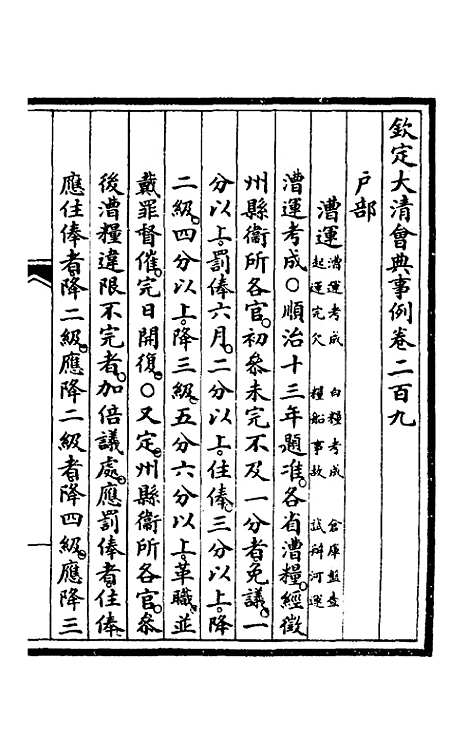 欽定大清會典事例卷二百九
戶部
漕運漕運考成 白糧考成 倉庫盤查
起運完欠 糧船事故 試辦河運
漕運考成○順治十三年題准。各省漕糧。經徵
州縣衞所各官。初參未完不及一分者免議。一
分以上。罰俸六月。二分以上。住俸。三分以上。降
二級。四分以上。降三級。五分六分以上。革職。並
戴罪督催。完日開復。○又定。州縣衞所各官。參
後漕糧違限不完者。加倍議處。應罰俸者。住俸。
應住俸者。降二級。應降二級者。降四級。應降三